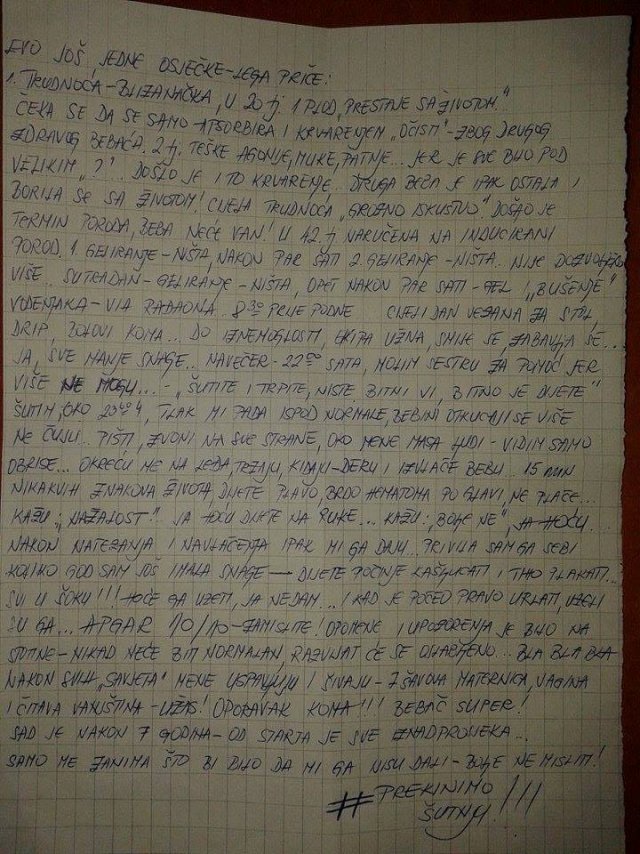 EVO JOŠ JEDNE OSJEČKE-LEGA PRIČE:
1. TRUDNOĆA-BLIZANAČKA, U 20 tj. 1 PLOD "PRESTAJE SA ŽIVOTOM."
ČEKA SE DA SE SAMO APSORBIRA I KRVARENJEM "OČISTI"-ZBOG DRUGOG
ZDRAVOG BEBAĆA. 2 tj. TEŠKE AGONIJE, MUKE, PATNJE... JER JE SVE BILO POD
VELIKIM "?"... DOŠLO JE I TO KRVARENJE. DRUGA BEBA JE IPAK OSTALA I
BORILA SE SA ŽIVOTOM! CIJELA TRUDNOĆA "GROZNO ISKUSTVO". DOŠAO JE
TERMIN PORODA, BEBA NEĆE VAN! U 42. tj NARUČENA NA INDUCIRANI
POROD. 1 GELIRANJE-NIŠTA, NAKON PAR SATI 2. GELIRANJE-NIŠTA. NIJE DOZVOLJENO
VIŠE. SUTRADAN-GELIRANJE-NIŠTA, OPET NAKON PAR SATI-GEL I "BUŠENJE"
VODENJAKA-VIA RAĐAONA. 8 30 PRIJE PODNE CIJELI DAN VEZANA ZA STOL,
DRIP, BOLOVI KOMA... DO IZNEMOGLOSTI, EKIPA UŽIVA, SMIJE SE ZABAVLJA SE...
JA, SVE MANJE SNAGE... NAVEČER-22 00 SATA, MOLIM SESTRU ZA POMOĆ JER
VIŠE NE MOGU...-"ŠUTITE I TRPITE, NISTE BITNI VI, BITNO JE DIJETE"
ŠUTIM, OKO TLAK MI PADA ISPOD NORMALE, BEBINI OTKUCAJI SE VIŠE
NE ČUJU. PIŠTI, ZVONI NA SVE STRANE, OKO MENE MASA LJUDI-VIDIM SAMO
OBRISE... OKREĆU ME NA LEĐA, TRZAJU, KIDAJU-DERU I IZVLAČE BEBU... 15 MIN
NIKAKVIH ZNAKOVA ŽIVOTA, DIJETE PLAVO, BRDO HEMATOMA PO GLAVI, NE PLAČE...
KAŽU: "NAŽALOST" JA HOĆU DIJETE NA RUKE... KAŽU: "BOLJE NE", JA HOĆU...
NAKON NATEZANJA I NAVLAČENJA IPAK MI GA DAJU. PRIVILA SAM GA SEBI
KOLIKO GOD SAM JOŠ IMALA SNAGE — DIJETE POČINJE KAŠLJUCATI I TIHO PLAKATI...
SVI U ŠOKU!!! HOĆE GA UZETI, JA NEDAM...! KAD JE POČEO PRAVO URLATI, UZELI
SU GA... APGAR 10/10-ZAMISLITE! OPOMENE I UPOZORENJA JE BILO NA
STOTINE-NIKAD NEĆE BITI NORMALAN, RAZVIJAT ĆE SE OTEŽANO... BLA BLA BLA
NAKON SVIH "SAVJETA" MENE USPAVLJUJU I ŠIVAJU- ŠAVOVA MATERNICA, VAGINA
I ČITAVA VANJŠTINA-UŽAS! OPORAVAK KOMA!!! BEBAĆ SUPER!
SAD JE NAKON 7 GODINA-OD STARTA JE SVE IZNADPROSJEKA...
SAMO ME ZANIMA ŠTO BI BILO DA MI GA NISU DALI-BOLJE NE MISLITI!
#PREKINIMO
ŠUTNJU!!!